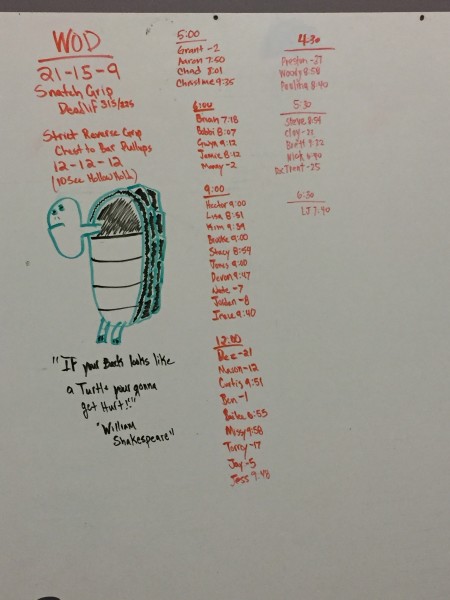 WOD
21-15-9
Snatch Grip
Deadlif 315/225
Strict Reverse Grip
Chest to Bar Pullups
12-12-12
(10 Sec Hollow Hold)
"IF your Back looks like
a Turtle your gonna
get Hurt!!"
"William
Shakespeare"
5:00
Grant -2
Aaron 7:50
Chad 8:01
Christine 9:35
6:00
Brian 7:18
Bobbi 8:07
Gwyn 9:12
Jamie 8:12
-2
9:00
Hector 9:00
Lisa 8:51
Kim 9:39
Brooke 9:00
Stacy 8:59
Jonis
Devon 9:47
Nate -7
Jordan -8
Irene 9:40
12:00
Dez -21
Mason -12
Curtis 9:51
Ben -1
8:55
Missy 9:58
Torrey -17
Jay -5
Jess 9:48
4:30
Preston -27
Woody 8:58
8:40
5:30
Steve 8:59
Clay -21
Brett
Nick
-25
6:30
LJ 7:40